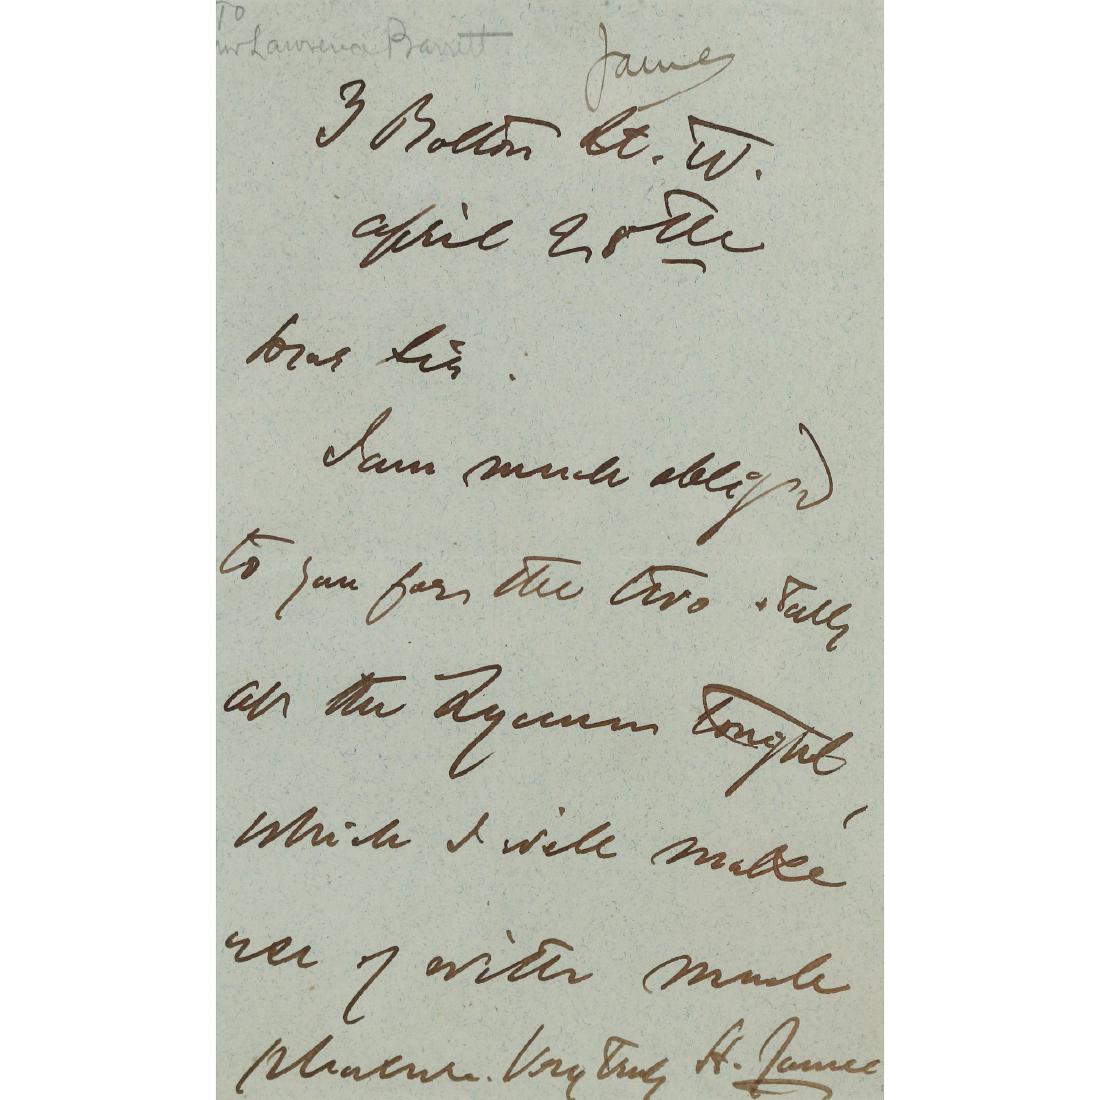 To
Mr Lawrence Barrett
James
3 Bolton St. W.
April 28th
Dear Sir.
I am much obliged
to you for the two stalls
at the Lyceum tonight,
which I will make
use of with much
pleasure. Very truly H. James